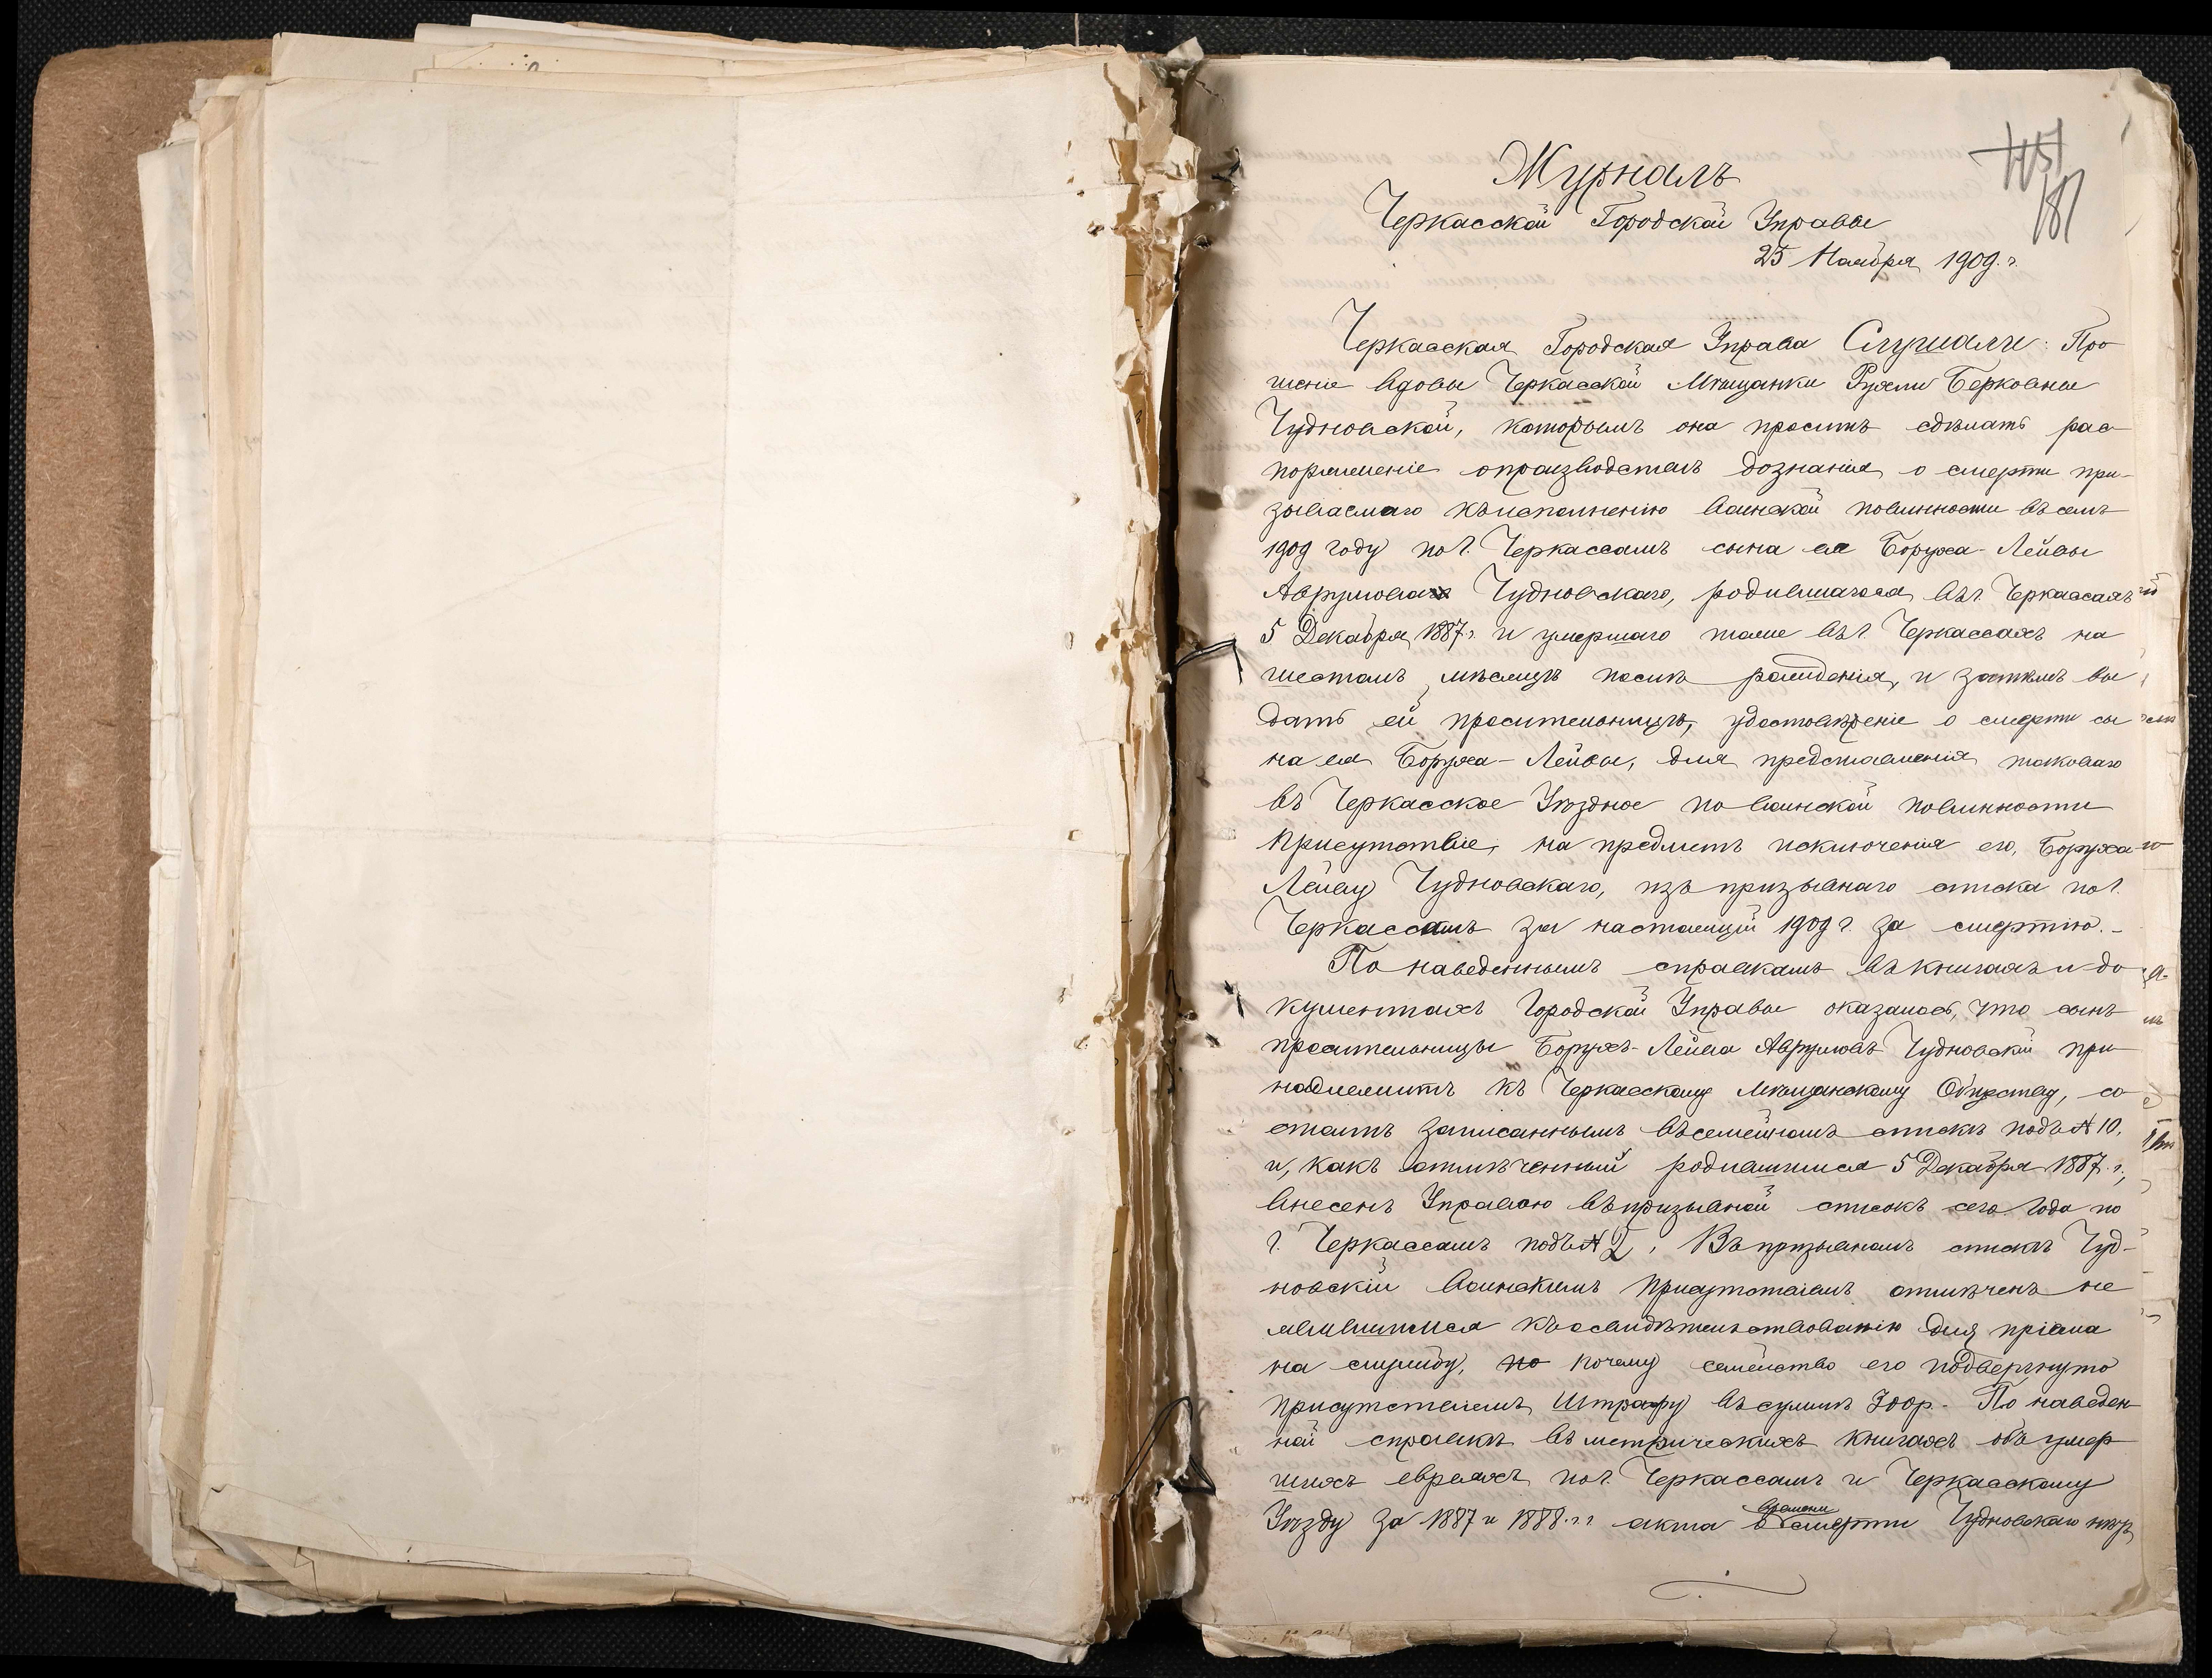 181
Журналъ
Черкасской Городской Управы
25 Ноября 1909 г.
Черкасская Городская Управа Слушали: Про
шеніе вдовы Черкасской Мѣщанки Рухли Берковны
Чудновской, которымъ она проситъ сдѣлать рас-
поряженіе о производствѣ дознанія о смерти при-
зываемаго къ исполненію воинской повинности въ семъ
1909 году по г. Черкассамъ сына ея Боруха-Лейвы
Аврумова Чудновскаго, родившагося въ г. Черкассахъ
5 Декабря 1887 г. и умершаго тоже въ г. Черкассахъ на
шестомъ мѣсяцѣ послѣ рожденія, и затѣмъ вы
дать ей просительницѣ, удостовѣреніе о смерти сы
на ея Боруха-Лейвы, для представленія таковаго
въ Черкасское Уѣздное по воинской повинности
Присутствіе, на предметъ исключенія его, Боруха
Лейву Чудновскаго, изъ призывнаго списка по г.
Черкассамъ за настоящій 1909 г. за смертію.-
По наведеннымъ справкамъ въ книгахъ и до
кументахъ Городской Управы оказалось, что сынъ
просительницы Борухъ-Лейва Аврумовъ Чудновскій при
надлежитъ къ Черкасскому Мѣщанскому Обществу, со
стоитъ записаннымъ въ семейномъ спискѣ подъ № 10,
и, какъ отмѣченный родившимся 5 Декабря 1887 г.,
внесенъ Управою въ призывной списокъ сего года по
г. Черкассамъ подъ № 2, Въ призывномъ спискѣ Чуд-
новскій Воинскимъ Присутствіемъ отмѣченъ не
явившимся къ освидѣтельствованію для пріема
на службу, почему семейство его подвергнуто
Присутствіемъ штрафу въ суммѣ 300 р. По наведен
ной справкѣ въ метрическихъ книгахъ объ умер
шихъ евреяхъ по г. Черкассамъ и Черкасскому
Уѣзду за 1887 и 1888 г.г. акта о смерти Чудновскаго